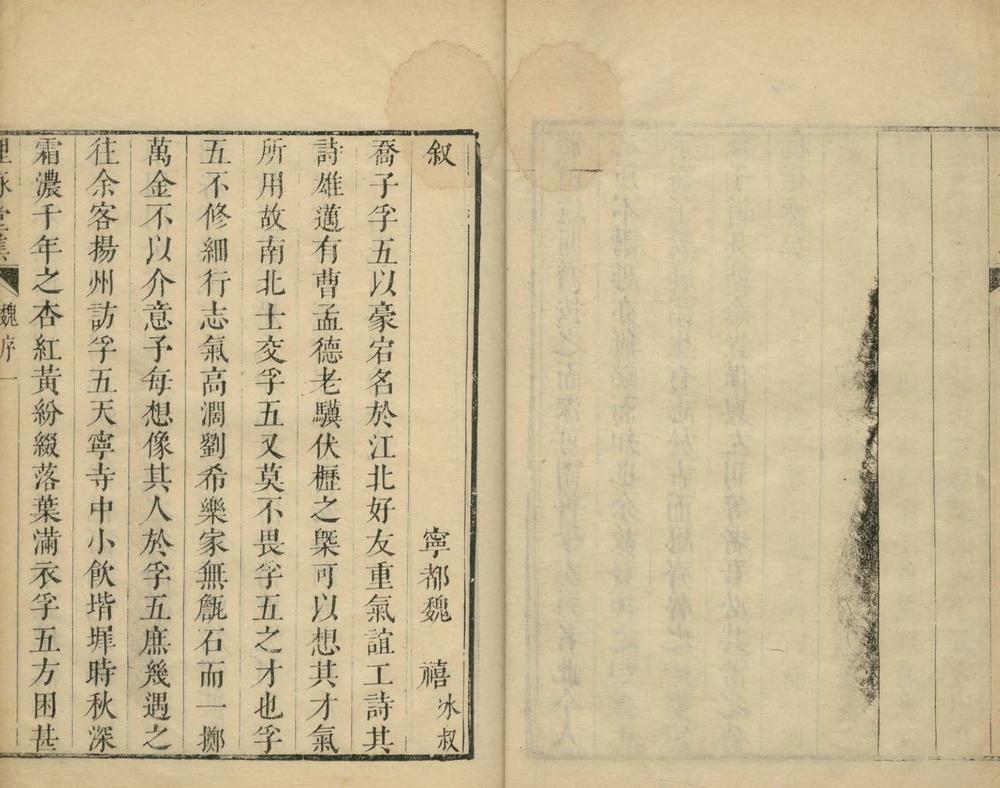 叙
寧都魏 禧冰叔
喬子孚五以豪宕名於江北好友重氣誼工詩其
詩雄邁有曹孟德老驥伏櫪之槩可以想其才氣
所用故南北士交孚五又莫不畏孚五之才也孚
五不修細行志氣高濶劉希樂家無甔石而一擲
萬金不以介意予每想像其人於孚五庶幾遇之
往余客揚州訪孚五天寧寺中小飲堦墀時秋深
霜濃千年之杏紅黃紛綴落葉滿衣孚五方困甚
堂集 魏序 一